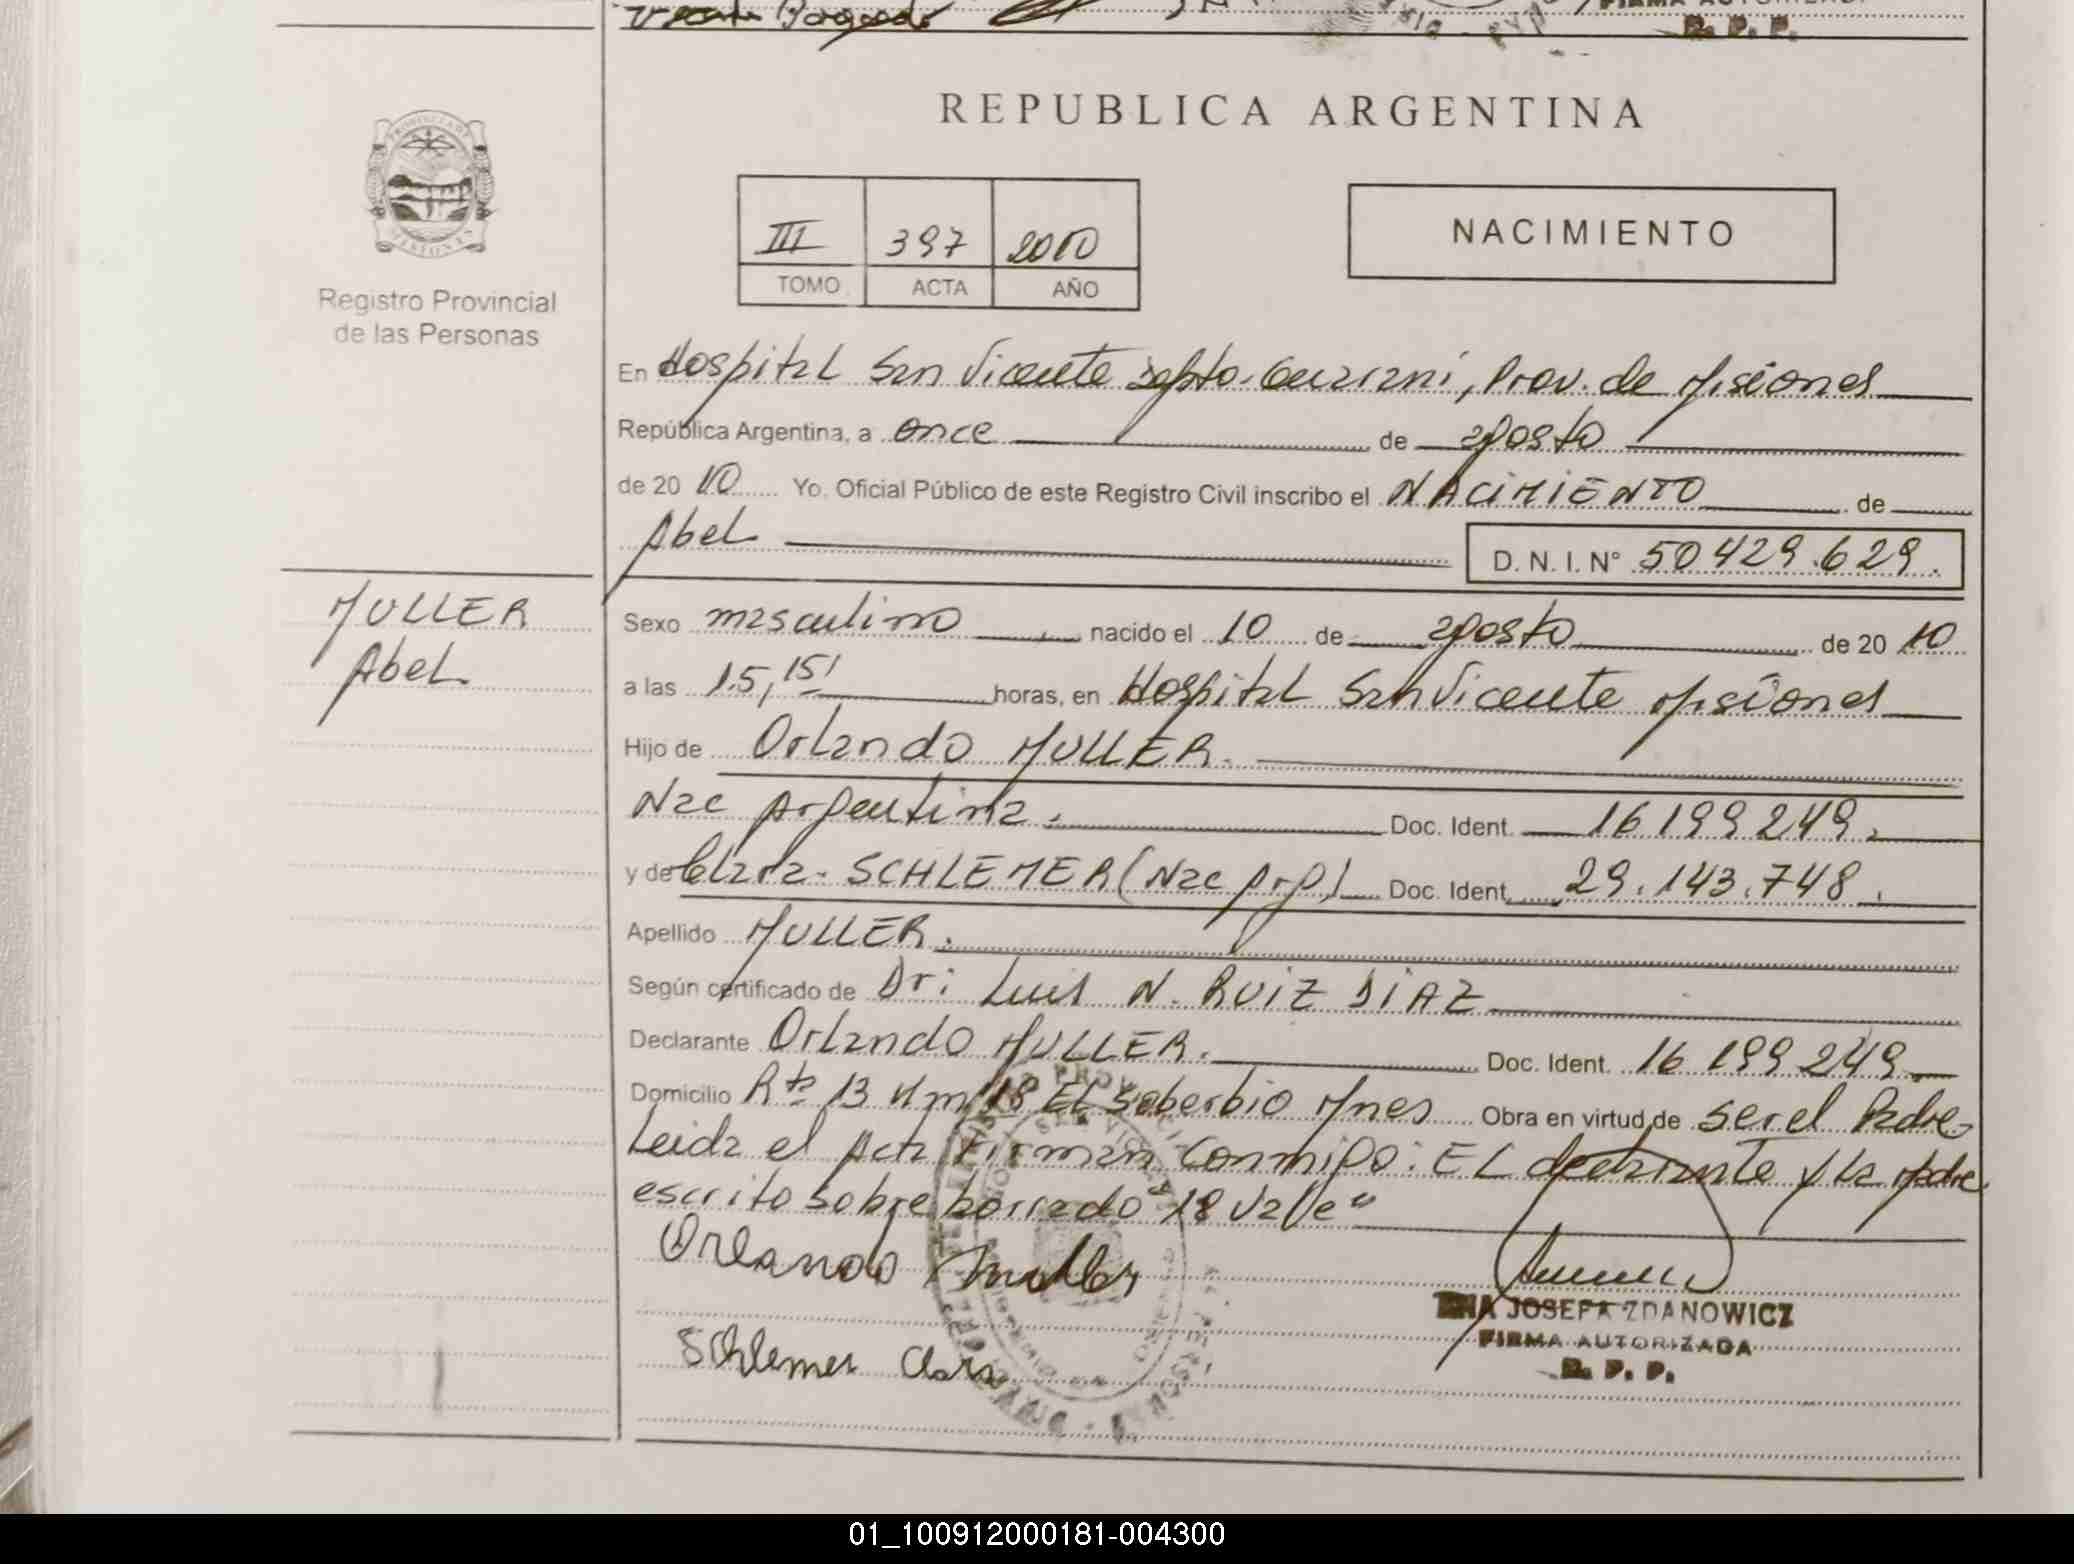 FIRMA AUTORIZADA
R. P. P.
REPUBLICA ARGENTINA
III 397 2010
TOMO ACTA AÑO
NACIMIENTO
PROVINCIA DE
MISIONES
Registro Provincial
de las Personas
En Hospital San Vicente Depto. Guarani, Prov. de Misiones
República Argentina, a once de agosto
de 20 10 Yo, Oficial Público de este Registro Civil inscribo el NACIMIENTO de
Abel
D. N. I. N° 50 429.629.
MULLER
Abel.
Sexo masculino nacido el 10 de agosto de 20 10
a las 15,15' horas, en Hospital San Vicente Misiones
Hijo de Orlando MULLER.
Nac Argentina. Doc. Ident. 16 199 249.
y de Clara. SCHLEMER (Nac Arg) Doc. Ident. 29.143.748.
Apellido MULLER.
Según certificado de Dr: Luis N. RUIZ DIAZ
Declarante Orlando MULLER. Doc. Ident. 16 199 249.
Domicilio Rta 13 Km 18 El Soberbio Mnes Obra en virtud de ser el Padre
Leida el Acta Firman Conmigo: EL declarante y la Madre
escrito sobre borrado "18 Vale"
Orlando Muller
Schlemer Clara
JOSEFA ZDANOWICZ
FIRMA AUTORIZADA
R. P. P.
01_100912000181-004300